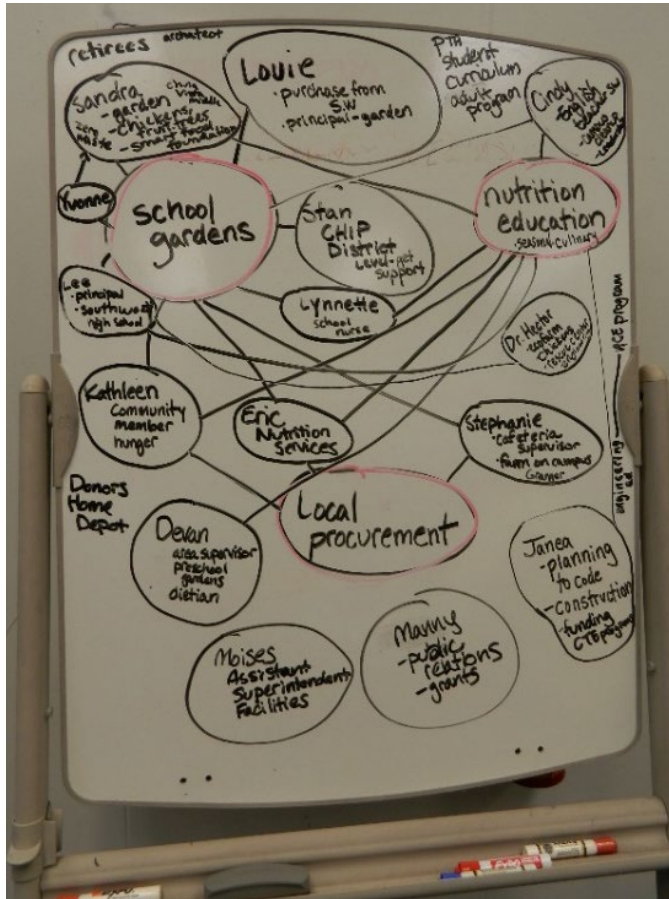 retirees architect
Sandra
-garden
-chickens
fruit trees
-smart food
foundation
zero
waste
Chula
Vista
middle
Louie
·purchase from
S.W
·principal-garden
PTA
student
curriculum
adult
program
Cindy
-English
Yvonne
school
gardens
Stan
CHIP
District
Level-get
support
nutrition
education
·seasonal-culinary
Lee
·principal
·southwest
high school
Lynnette
school
nurse
Dr. Hector
chickens
ACE program
Kathleen
community
member
hunger
Eric
Nutrition
Services
Stephanie
·cafeteria
supervisor
·farm on campus
Granger
engineering
ed
Donors
Home
Depot
Local
procurement
Devan
area supervisor
preschool
gardens
dietian
Janea
-planning
to code
-construction
-funding
CTE programs
Moises
Assistant
Superintendent
Facilities
Manny
-public
relations
-grants
EXPO